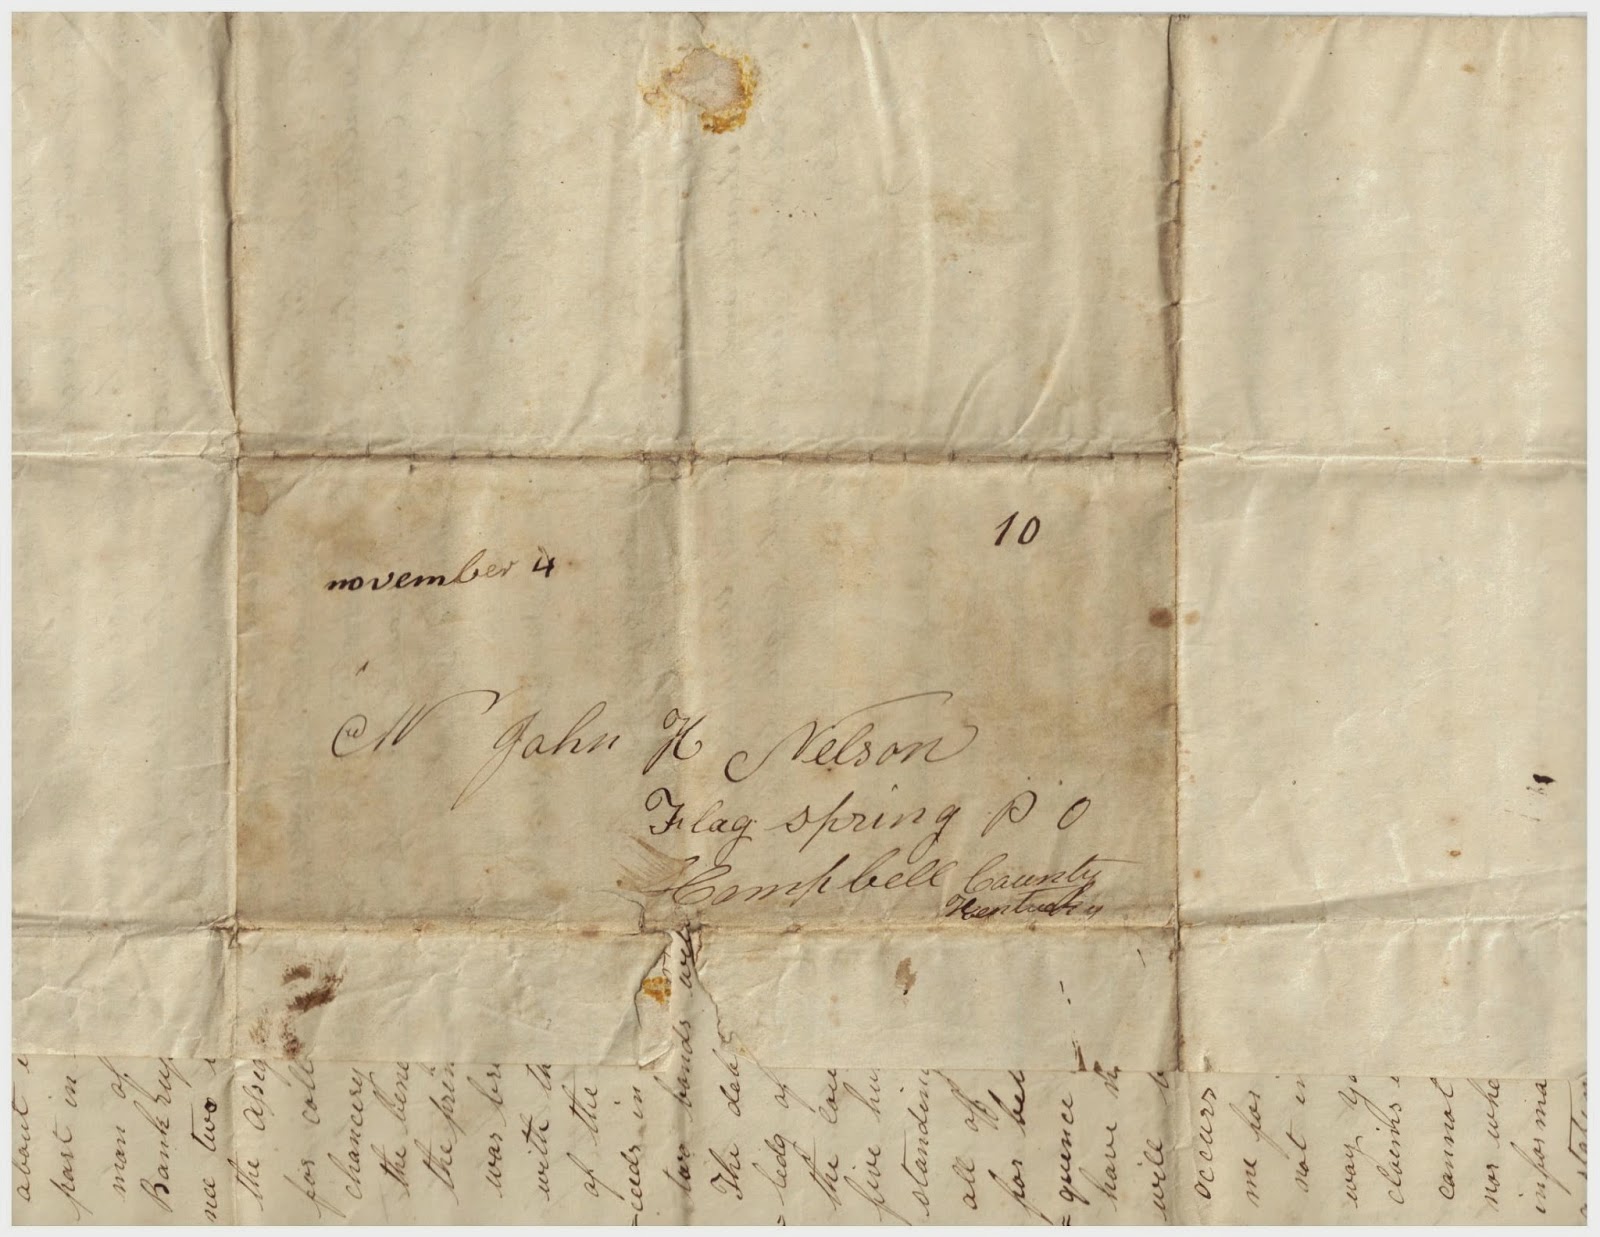 10
november 4
M John H Nelson
Flag spring P O
Campbell County
Kentucky
about
part in
man of
Bankrup
nce two
the assig
for coll
chancery
the bene
the prin
was bro
with th
of the
-ceeds in
tar bonds are
The deb
-ledg of
the lou
five hu
standing
all of
for bei
-quence
have
will b
occurs
me for
not in
way yo
claims
cannot
nor whe
informa